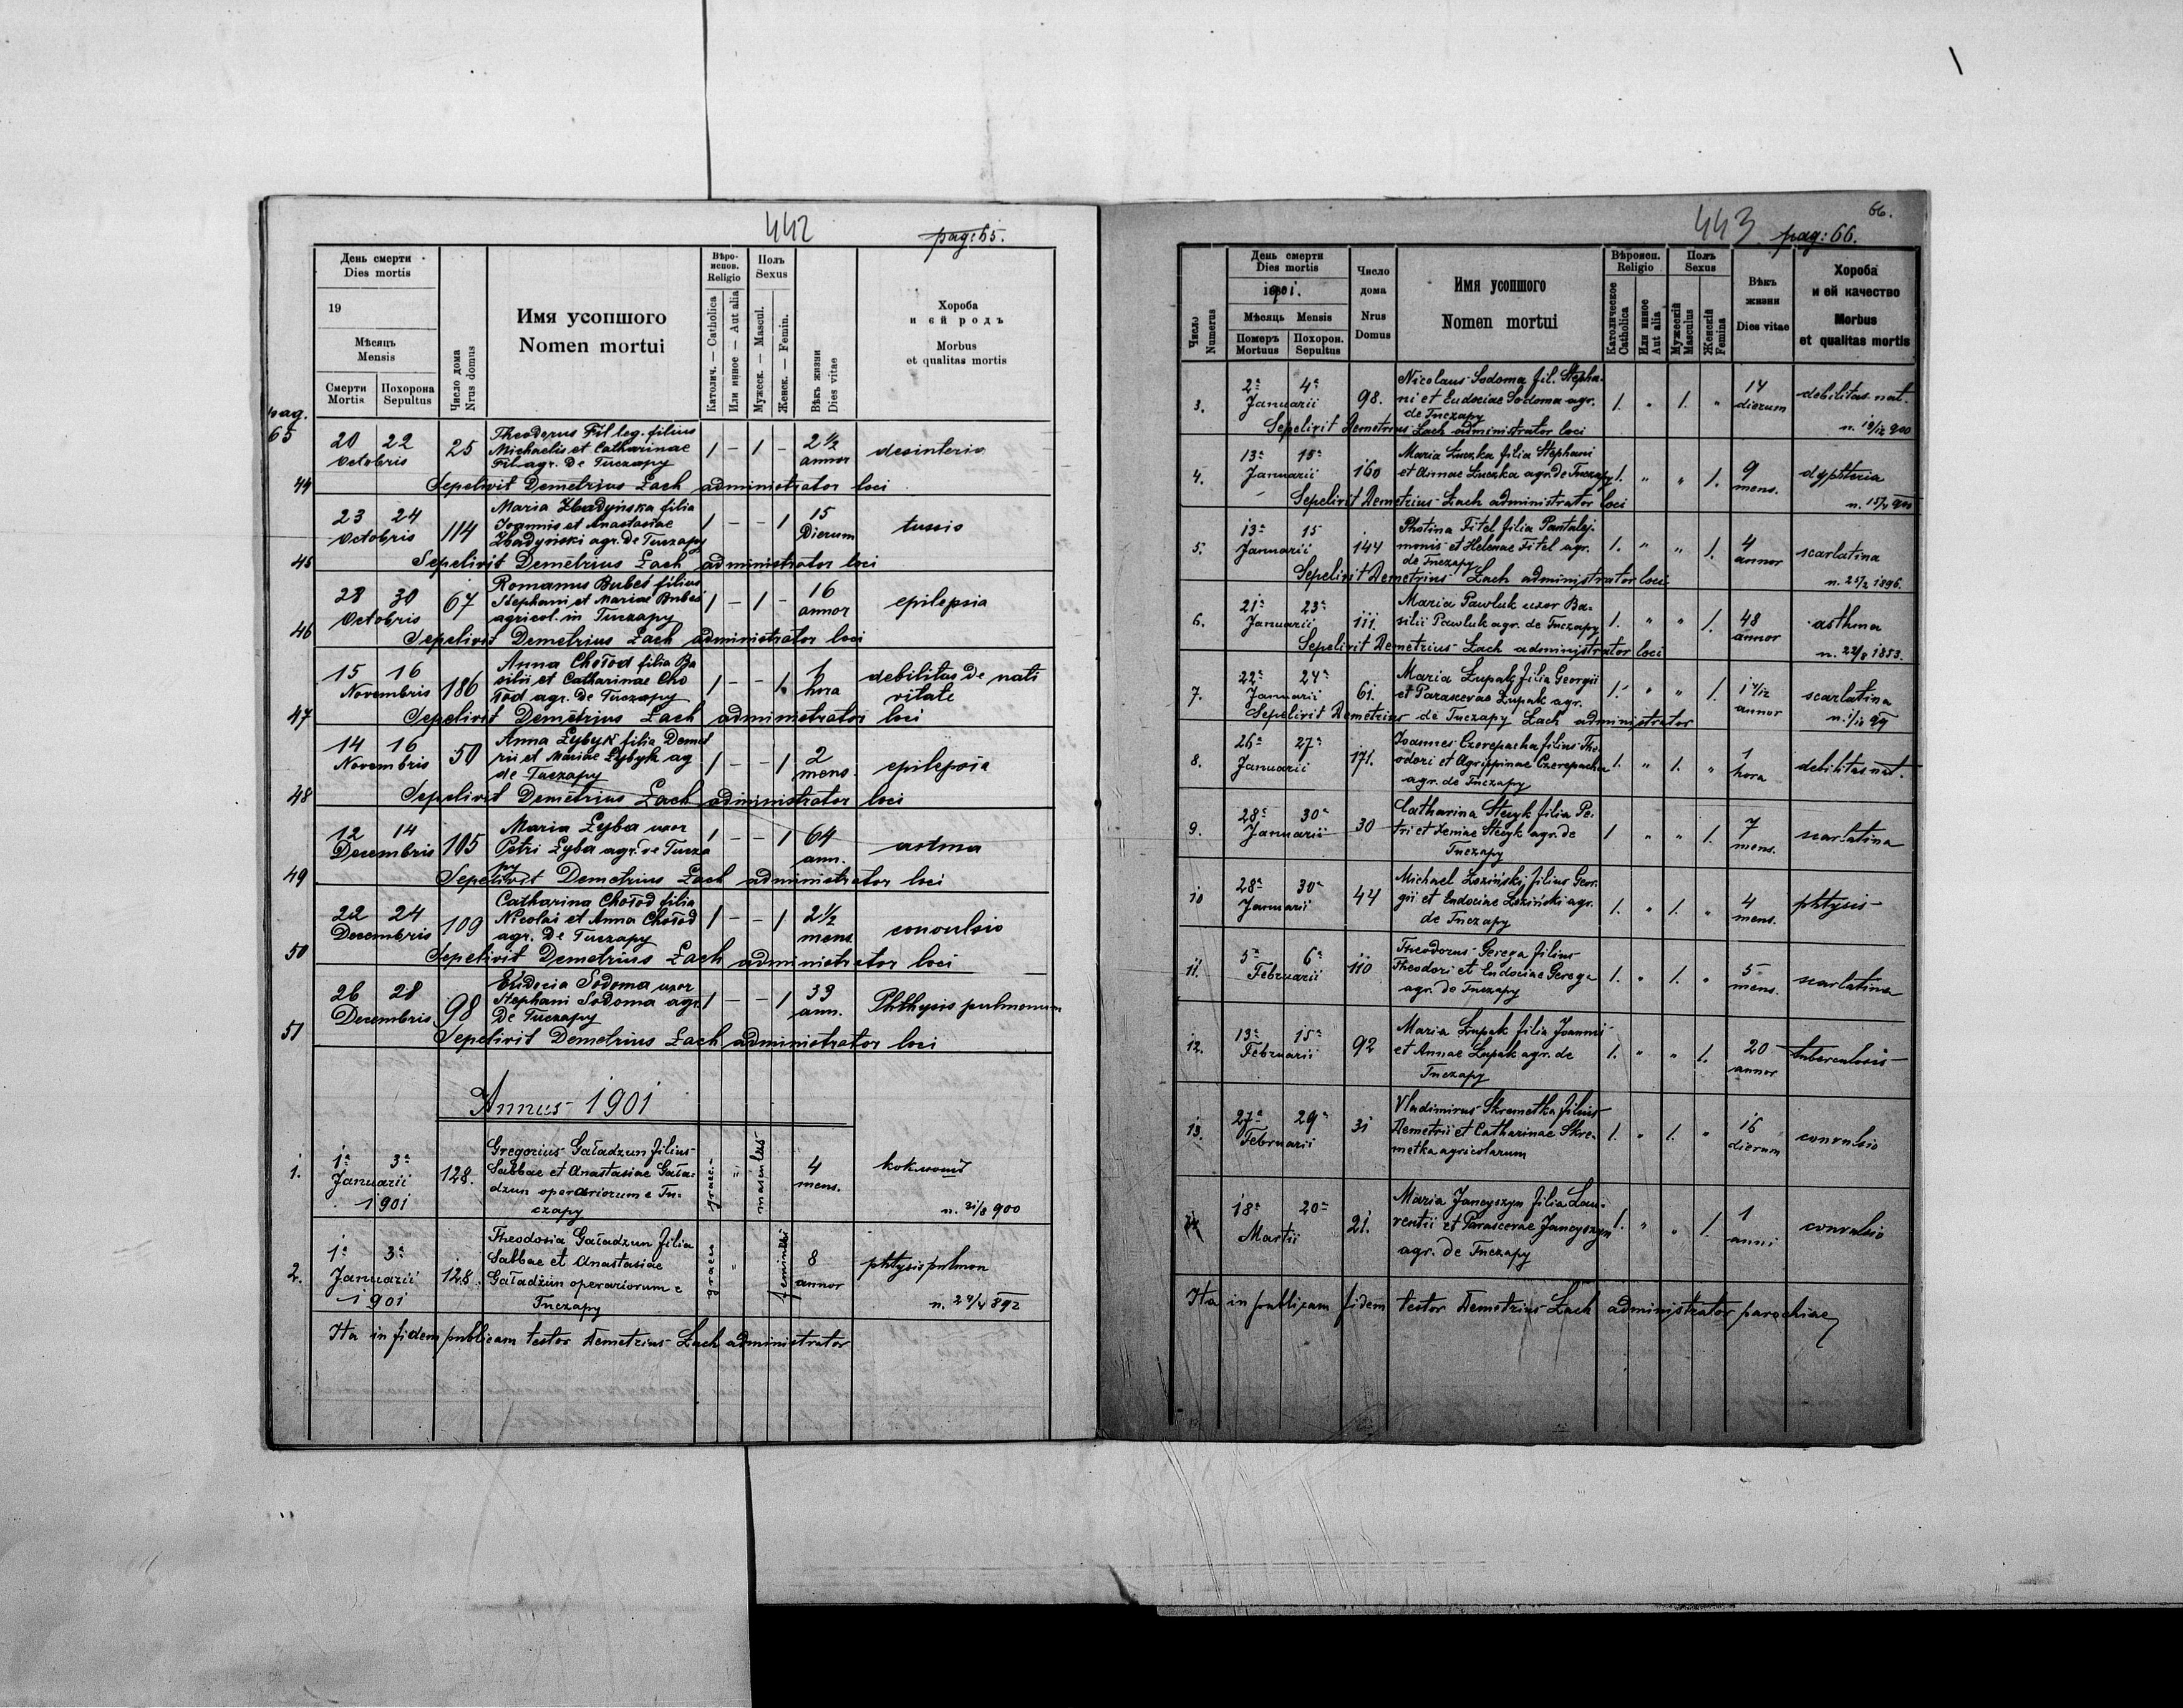 442
pag: 65.
День смерти
Dies mortis
19
Мѣсяць
Mensis
Смерти
Mortis
Похорона
Sepultus
Число дома
Nrus domus
Имя усопшого
Nomen mortui
Вѣро-
испов.
Religio
Католич. — Catholica
Или инное — Aut alia
Полъ
Sexus
Мужеск. — Mascul.
Женск. — Femin.
Вѣкъ жизни
Dies vitae
Хороба
и єй родъ
Morbus
et qualitas mortis
pag.
65
20 22 25 Theodorus Fil leg. filius 1 - 1 - 2 ½ desinteria
Octobris Michaelis et Catharinae annor
Fil agr. de Tuczapy
44 Sepelivit Demetrius Łach administrator loci
23 24 114 Maria Zbadyńska filia 1 - - 1 15 tussis
Octobris Joannis et Anastasiae Dierum
Zbadyński agr. de Tuczapy
45 Sepelivit Demetrius Łach administrator loci
28 30 67 Romanus Bubeś filius 1 - 1 - 16 epilepsia
Octobris Stephani et Mariae Bubeś annor
agricol. in Tuczapy
46 Sepelivit Demetrius Łach administrator loci
15 16 186 Anna Chołod filia Ba 1 - - 1 1 debilitas de nati
Novembris silii et Catharinae Cho hora vitate
łod agr. de Tuczapy
47 Sepelivit Demetrius Łach administrator loci
14 16 50 Anna Łybyk filia Demet 1 - - 1 2 epilepsia
Novembris rii et Mariae Łybyk ag mens.
de Tuczapy
48 Sepelivit Demetrius Łach administrator loci
12 14 105 Maria Łyba uxor 1 - - 1 64 astma
Decembris Petri Łyba agr. de Tucza ann.
py
49 Sepelivit Demetrius Łach administrator loci
22 24 109 Catharina Chołod filia 1 - - 1 2½ convulsio
Decembris Nicolai et Anna Chołod mens.
agr. de Tuczapy
50 Sepelivit Demetrius Łach administrator loci
26 28 98 Eudocia Sodoma uxor 1 - - 1 39 Phthysis pulmonum
Decembris Stephani Sodoma agr. ann.
de Tuczapy
51 Sepelivit Demetrius Łach administrator loci
Annus 1901
1. 1a 3a 128. Gregorius Gaładzun filius graec.- " masculus 4
Januarii Sabbae et Anastasiae Gała- mens.
1901 dzun operariorum e Tu- n. 31/8 900
czapy
2. 1a 3a 128. Theodosia Gaładzun filia graeca " 8 phtysis pulmon
Januarii Sabbae et Anastasiae annor
1901 Gaładzun operariorum e n. 24/4 892
Tuczapy
Ita in fidem publicam testor Demetrius Łach administrator
66.
443 pag: 66.
Число
Numerus
День смерти
Dies mortis
1901.
Мѣсяць Mensis
Померъ
Mortuus
Похорон.
Sepultus
Число
дома
Nrus
Domus
Имя усопшого
Nomen mortui
Вѣроисп.
Religio
Католическое
Catholica
Или инное
Aut alia
Полъ
Sexus
Мужескій
Masculus
Женскій
Femina
Вѣкъ
жизни
Dies vitae
Хороба
и ей качество
Morbus
et qualitas mortis
3. 2a 4a 98. Nicolaus Sodoma fil. Stepha- 1. " 1. " 14 debilitas nat.
Januarii ni et Eudociae Sodoma agr. dierum
de Tuczapy n. 19/12 900
Sepelivit Demetrius Łach administrator loci
4. 13a 15a 160 Maria Łuczka filia Stephani 1. " " 1. 9 dyphteria
Januarii et Annae Łuczka agr. de Tuczapy mens.
Sepelivit Demetrius Łach administrator loci
5. 13a 15 144 Photina Fitel filia Pantalej- 1. " " 1. 4 scarlatina
Januarii monis et Helenae Fitel agr. annor
de Tuczapy n. 25/2 1896.
Sepelivit Demetrius Łach administrator loci
6. 21a 23a 111. Maria Pawluk uxor Ba- 1. " " 1. 48 asthma
Januarii silii Pawluk agr. de Tuczapy annor
Sepelivit Demetrius Łach administrator loci n. 22/8 1853.
7. 22a 24a 61. Maria Łupak filia Georgii 1. " " 1. 1 1/12 scarlatina
Januarii et Parascevae Łupak agr. annor
Sepelivit Demetrius de Tuczapy Łach administrator
8. 26a 27a 171. Joannes Czerepacha filius Tho- 1. " 1. " 1 debilitas nat.
Januarii odori et Agrippinae Czerepacha hora
agr. de Tuczapy
9. 28a 30a 30 Catharina Stecyk filia Pe- 1 " " 1. 7 scarlatina
Januarii tri et Xeniae Stecyk agr. de mens.
Tuczapy
10 28a 30a 44 Michael Łoziński filius Geor- 1. " 1. " 4 phtysis
Januarii gii et Eudociae Łoziński agr. mens.
de Tuczapy
11. 5a 6a 110 Theodorus Gerega filius 1. " 1. " 5 scarlatina
Februarii Theodori et Eudociae Gerega mens.
agr. de Tuczapy
12. 13a 15a 92 Maria Łupak filia Joannis 1. " " 1. 20 tuberculosis
Februarii et Annae Łupak agr. de annor
Tuczapy
13. 27a 29a 31 Vladimirus Skremetka filius 1. " 1. " 16 convulsio
Februarii Demetrii et Catharinae Skre- dierum
metka agricolarum
18a 20a 21. Maria Jancyszyn filia Lau- 1. " " 1. 1 convulsio
Martii rentii et Parascevae Jancyszyn anni
agr. de Tuczapy
Ita in publicam fidem testor Demetrius Łach administrator parochiae